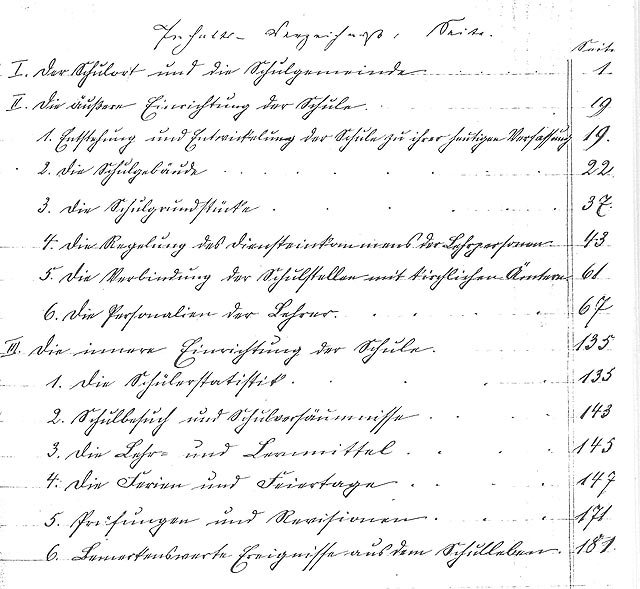 Inhalts-Verzeichniß, Seite.
Seite
I. Der Schulort und die Schulgemeinde 1.
II. Die äußere Einrichtung der Schule. 19
1. Entstehung und Entwickelung der Schule zu ihrer heutigen Verfassung 19.
2. Die Schulgebäude 22
3. Die Schulgrundstücke 37.
4. Die Regelung des Diensteinkommens der Lehrpersonen 43
5. Die Verbindung der Schulstellen mit kirchlichen Ämtern 61
6. Die Personalien der Lehrer. 67
III. Die innere Einrichtung der Schule. 135
1. Die Schülerstatistik. 135
2. Schulbesuch und Schulversäumnisse 143
3. Die Lehr- und Lernmittel. 145
4. Die Ferien und Feiertage 147
5. Prüfungen und Revisionen. 171
6. Bemerkenswerte Ereignisse aus dem Schulleben. 181.